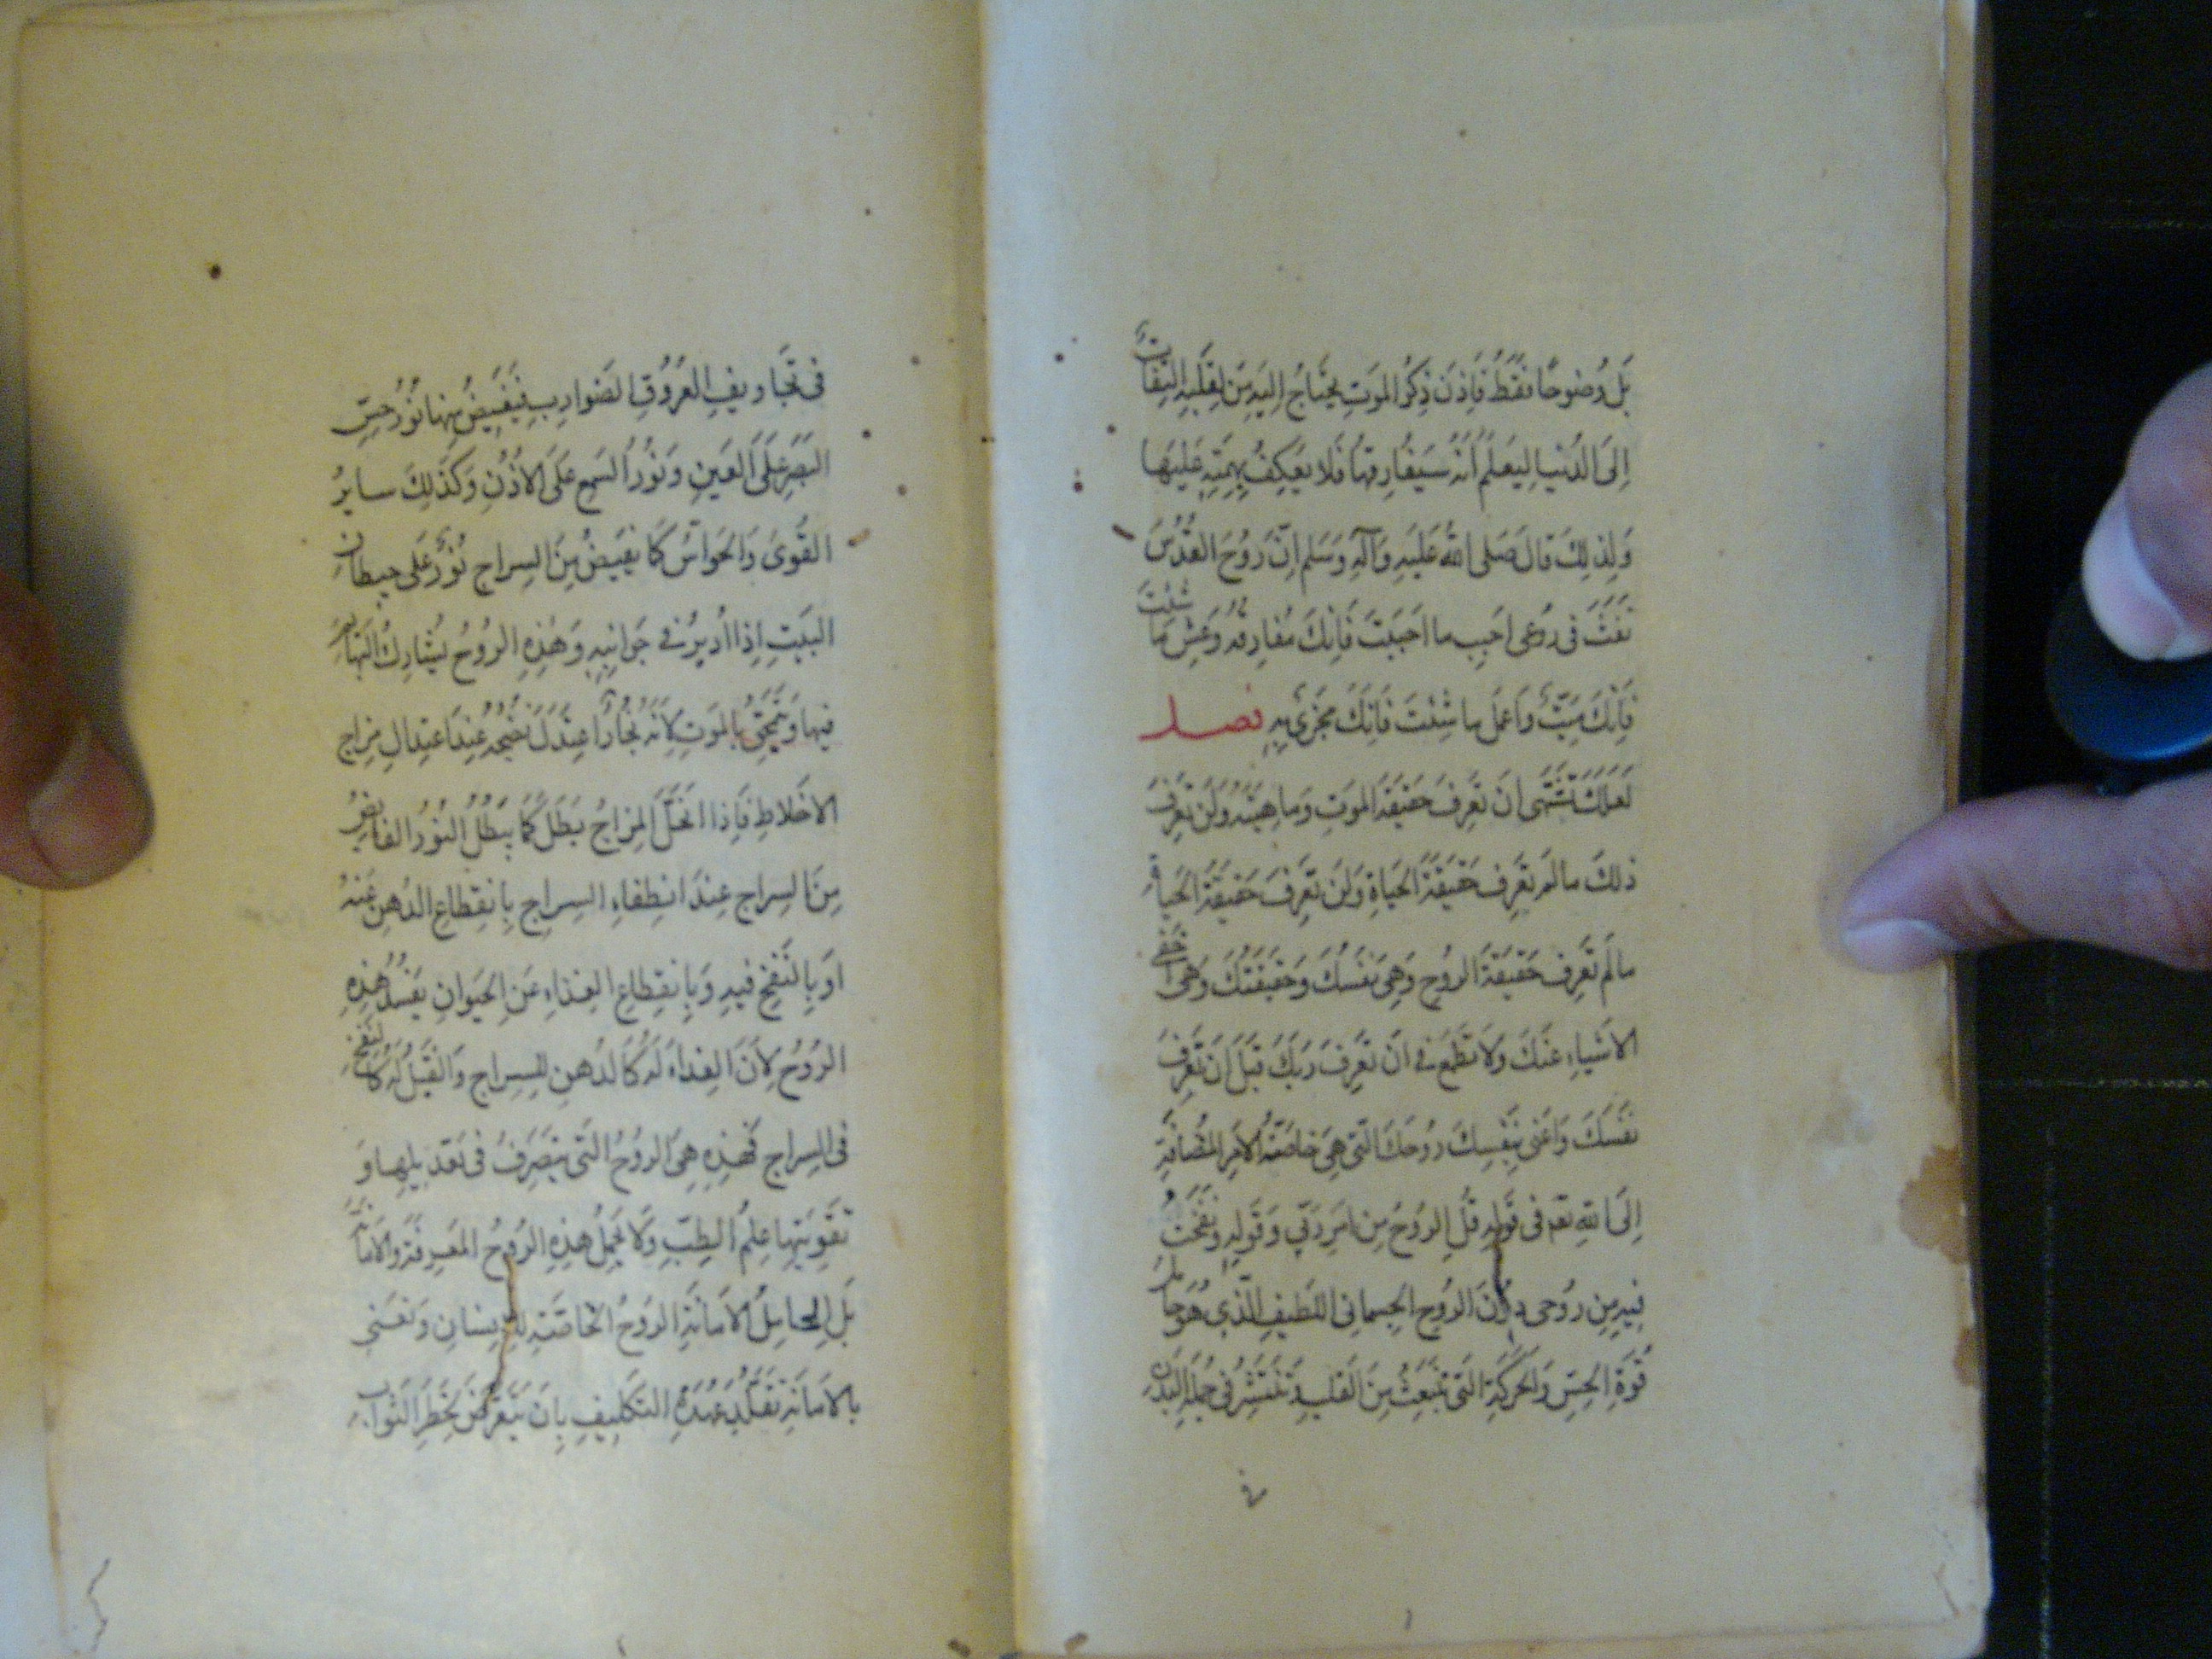 بَل وُضوحًا فَقَط فَاِذَن ذِكرُ المَوتِ يَحتَاجُ اِلَيهِ مَن لِقَلبِهِ التِفَاتٌ
اِلَى الدُنيا لِيَعلَمَ اَنّهُ سَيُفارِقُها فَلا يَعكِفُ بِهِمّتِهِ عَلَيهَا
وَلِذلِكَ قالَ صَلى اللهُ عَلَيهِ وَآلِهِ وَسَلم اِنّ رَوُحَ القُدُسِ
نَفَثَ فى رَوُعى اَحبِب ما اَحبَبتَ فَاِنّكَ مُفارِقُهُ وَعِش مَا شِئتَ
فَاِنّكَ مَيّتٌ وَاعمَل ما شِئتَ فَاِنّكَ مَجزىٌ بِهِ فصل
لَعَلّكَ تَشتَهى اَن تَعرِفَ حَقيقَةَ المَوتِ وَماهِيّتَهُ وَلَن تَعرِفَ
ذلِكَ مالَم تَعرِف حَقيقَةَ الحَياةِ وَلَن تَعرِفَ حَقيقَةَ الحَياةِ
مالَم تَعرِف حَقيقَةَ الروُحِ وَهِىَ نَفسُكَ وَحَقيقَتُكَ وَهِىَ اَخفَى
الاَشياءِ عَنكَ وَلا تَطمَع فى اَن تَعرِفَ رَبّكَ قَبلَ اَن تَعرِفَ
نَفسَكَ وَاَعنى بِنَفسِكَ روُحَكَ الّتى هِىَ خاصّةُ الاَمرِ المُضافَةِ
اِلَى اللهِ تع فى قَولِهِ قُلِ الروُحُ مِن اَمرِ رَبّي وَقَولِهِ وَنَفَختُ
فيهِ مِن روُحى دوُنَ الروُحِ الجِسمانِى اللَطيفِ الّذي هُوَ حَامِلُ
قُوّةِ الحِسِّ وَالحَرَكَةِ الّتى تَنبَعِثُ مِنَ القَلبِ وَتَنتَشِرُ فى جُملَةِ البَدَنِ
فى
فى تَجَاويفِ العُرُوُقِ الضَوارِبِ فَيَفيضُ مِنها نوُرُ حِسِّ
البَصَرِ عَلَى العَينِ وَنوُرُ السَمعِ عَلَى الاُذُنِ وَكَذلِكَ سايرُ
القُوَى وَالحَواسِّ كَما يَفيضُ مِنَ السِراجِ نوُرٌ عَلى حيطانِ
البَيتِ اِذا اُديرَ فى جَوانِبِهِ وَهذِهِ الروُحُ يُشارِكُ البَهائِمَ
فيها وَتَمحَقُ بِالمَوتِ لِاَنّهُ بُخارٌ اعتَدَلَ نُضجُهُ عِندَ اعتِدالِ مِزاجِ
الاَخلاطِ فَاِذا انحَلَّ المِزاجُ بَطَلَ كَما يَبطُلُ النوُرُ الفايضُ
مِنَ السِراجِ عِندَ انطِفاءِ السِراجِ بِانقِطاعِ الدُهنِ عَنهُ
اَو بِالنَفخِ فيهِ وَبِانقِطاعِ الغِذاءِ عَنِ الحَيَوانِ يَفسُدُ هذِهِ
الروُحُ لِاَنَّ الغِذاءَ لَهُ كَالدُهنِ لِلسِراجِ وَالقَتلُ لَهُ كَالنَفخِ
فى السِراجِ فَهذِهِ هِىَ الروُحُ الّتى يَتَصَرَّفُ فى تَعديلِها وَ
تَقوِيَتِها عِلمُ الطِبِّ وَلا يَحمِلُ هذِهِ الروُحُ المَعرِفَةَ وَالاَمانَةَ
بَلِ الحامِلُ الاَمانَةِ الروُحُ الخاصّةِ لِلاِنسانِ وَنَعنى
بِالاَمانَةِ تَقَلُّدَ عُهدَةِ التَكليفِ بِاَن يَتَعَرَّضَ لِخَطَرِ الثَوابِ